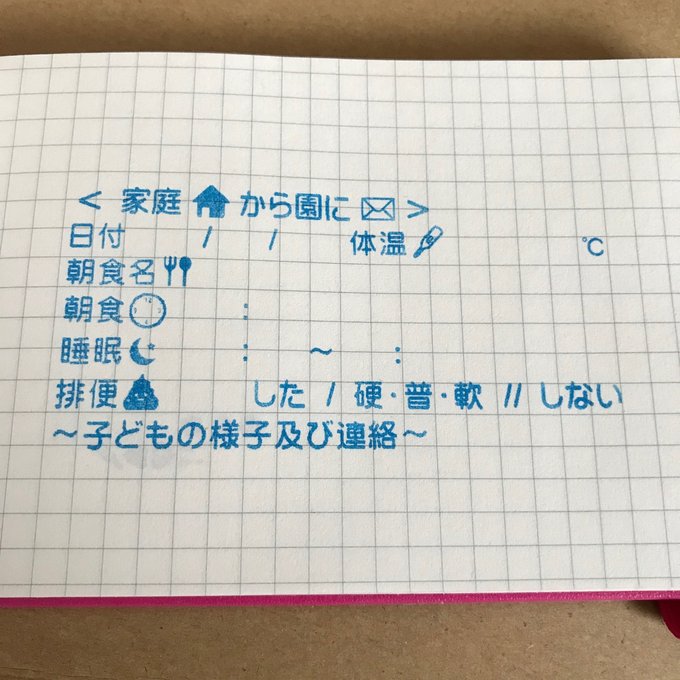 < 家庭から園に >
日付 / / 体温 ℃
朝食名
朝食 :
睡眠 : ～ :
排便 した / 硬・普・軟 // しない
～子どもの様子及び連絡～